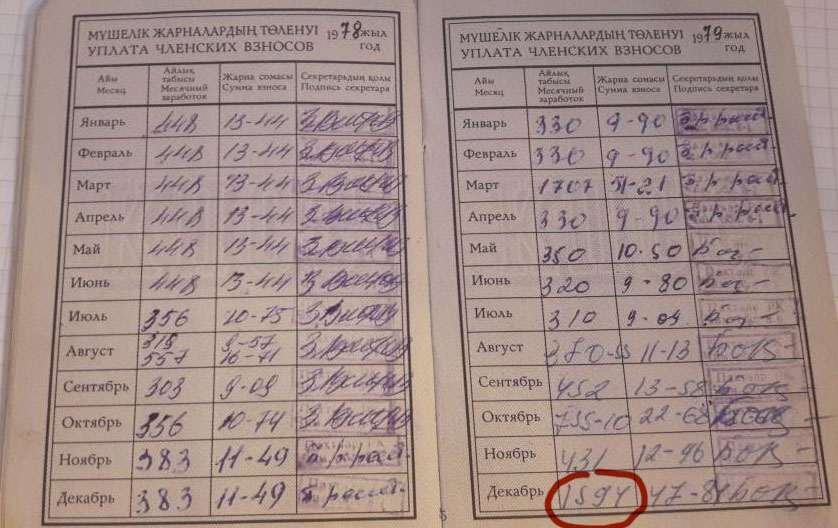 МҮШЕЛІК ЖАРНАЛАРДЫҢ ТӨЛЕНУІ 1978 ЖЫЛ
УПЛАТА ЧЛЕНСКИХ ВЗНОСОВ ГОД
Айы Месяц Айлық табысы Месячный заработок Жарна сомасы Сумма взноса Секретарьдың қолы Подпись секретаря
Январь 448 13-44
Февраль 448 13-44
Март 448 13-44
Апрель 448 13-44
Май 448 13-44
Июнь 448 13-44
Июль 356 10-75
Август 319 9-57
557 16-71
Сентябрь 303 9-09
Октябрь 356 10-74
Ноябрь 383 11-49
Декабрь 383 11-49
МҮШЕЛІК ЖАРНАЛАРДЫҢ ТӨЛЕНУІ 1979 ЖЫЛ
УПЛАТА ЧЛЕНСКИХ ВЗНОСОВ ГОД
Айы Месяц Айлық табысы Месячный заработок Жарна сомасы Сумма взноса Секретарьдың қолы Подпись секретаря
Январь 330 9-90
Февраль 330 9-90
Март 1707 51-21
Апрель 330 9-90
Май 350 10-50
Июнь 320 9-80
Июль 310 9-04
Август 11-13
Сентябрь 452 13-58
Октябрь 755-10 22-68
Ноябрь 431 12-96
Декабрь 1594 47-84
5